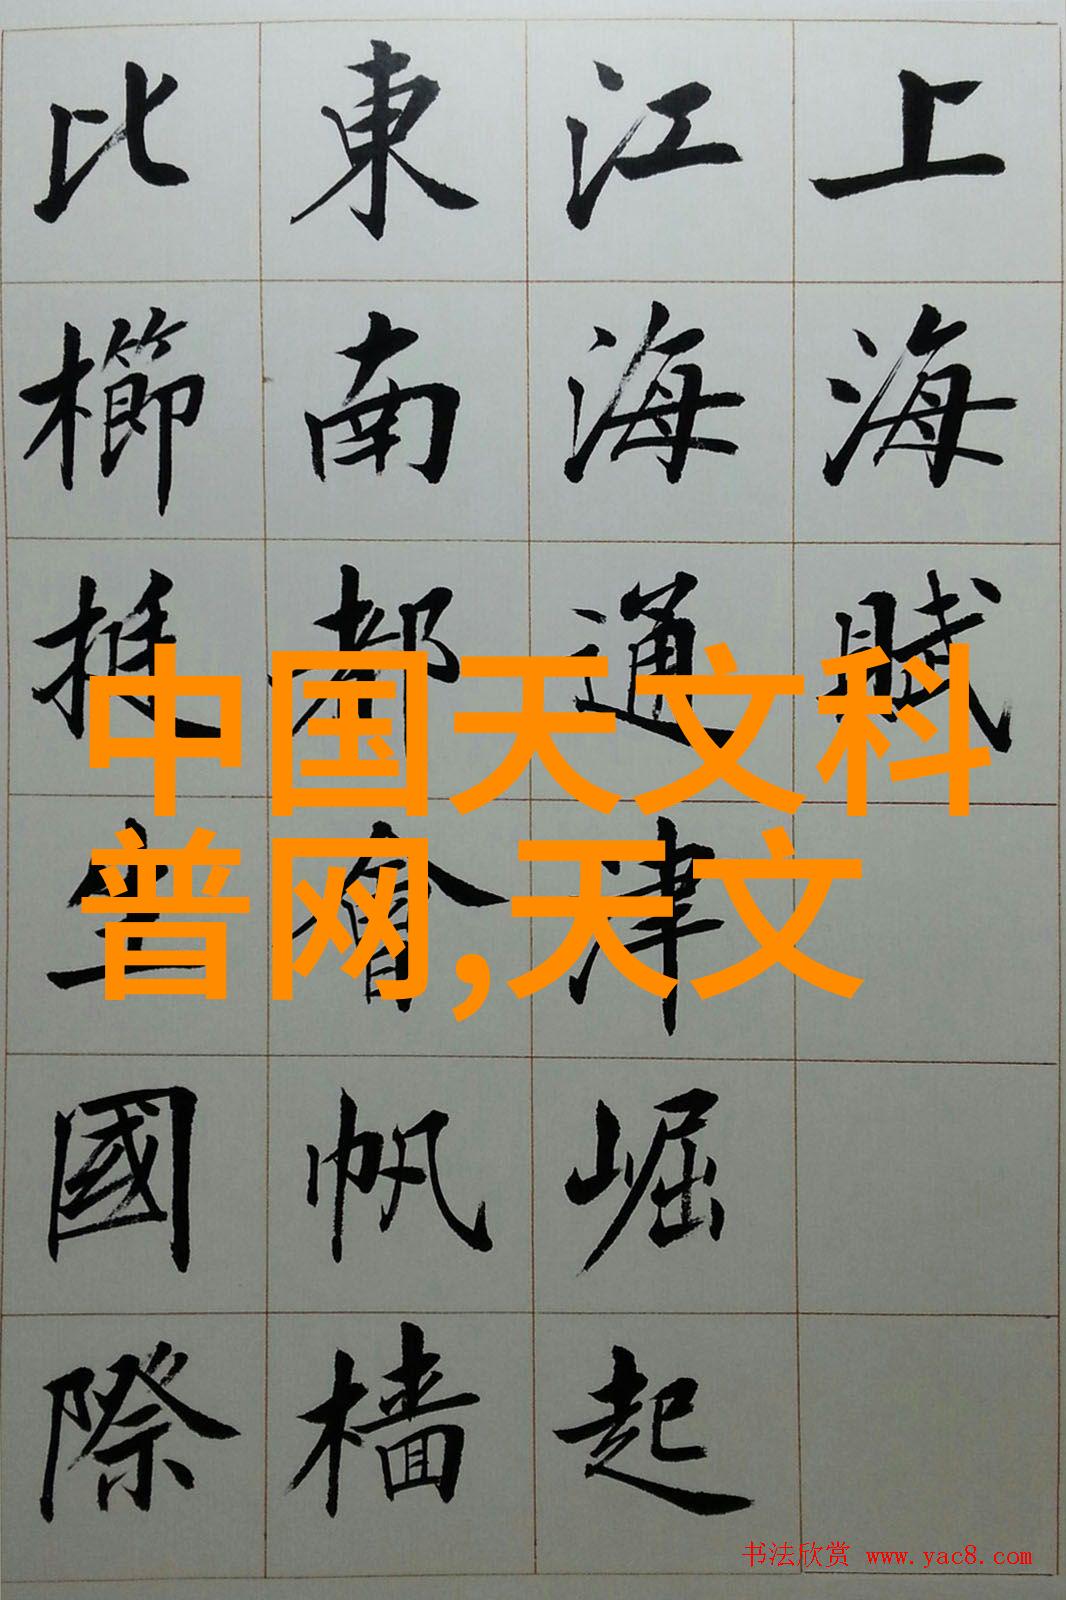 上海賦
江海通津崛起
東南都會帆檣
比櫛挺生國際
中国天文科
普网,天文
书法欣赏 www.yac8.com